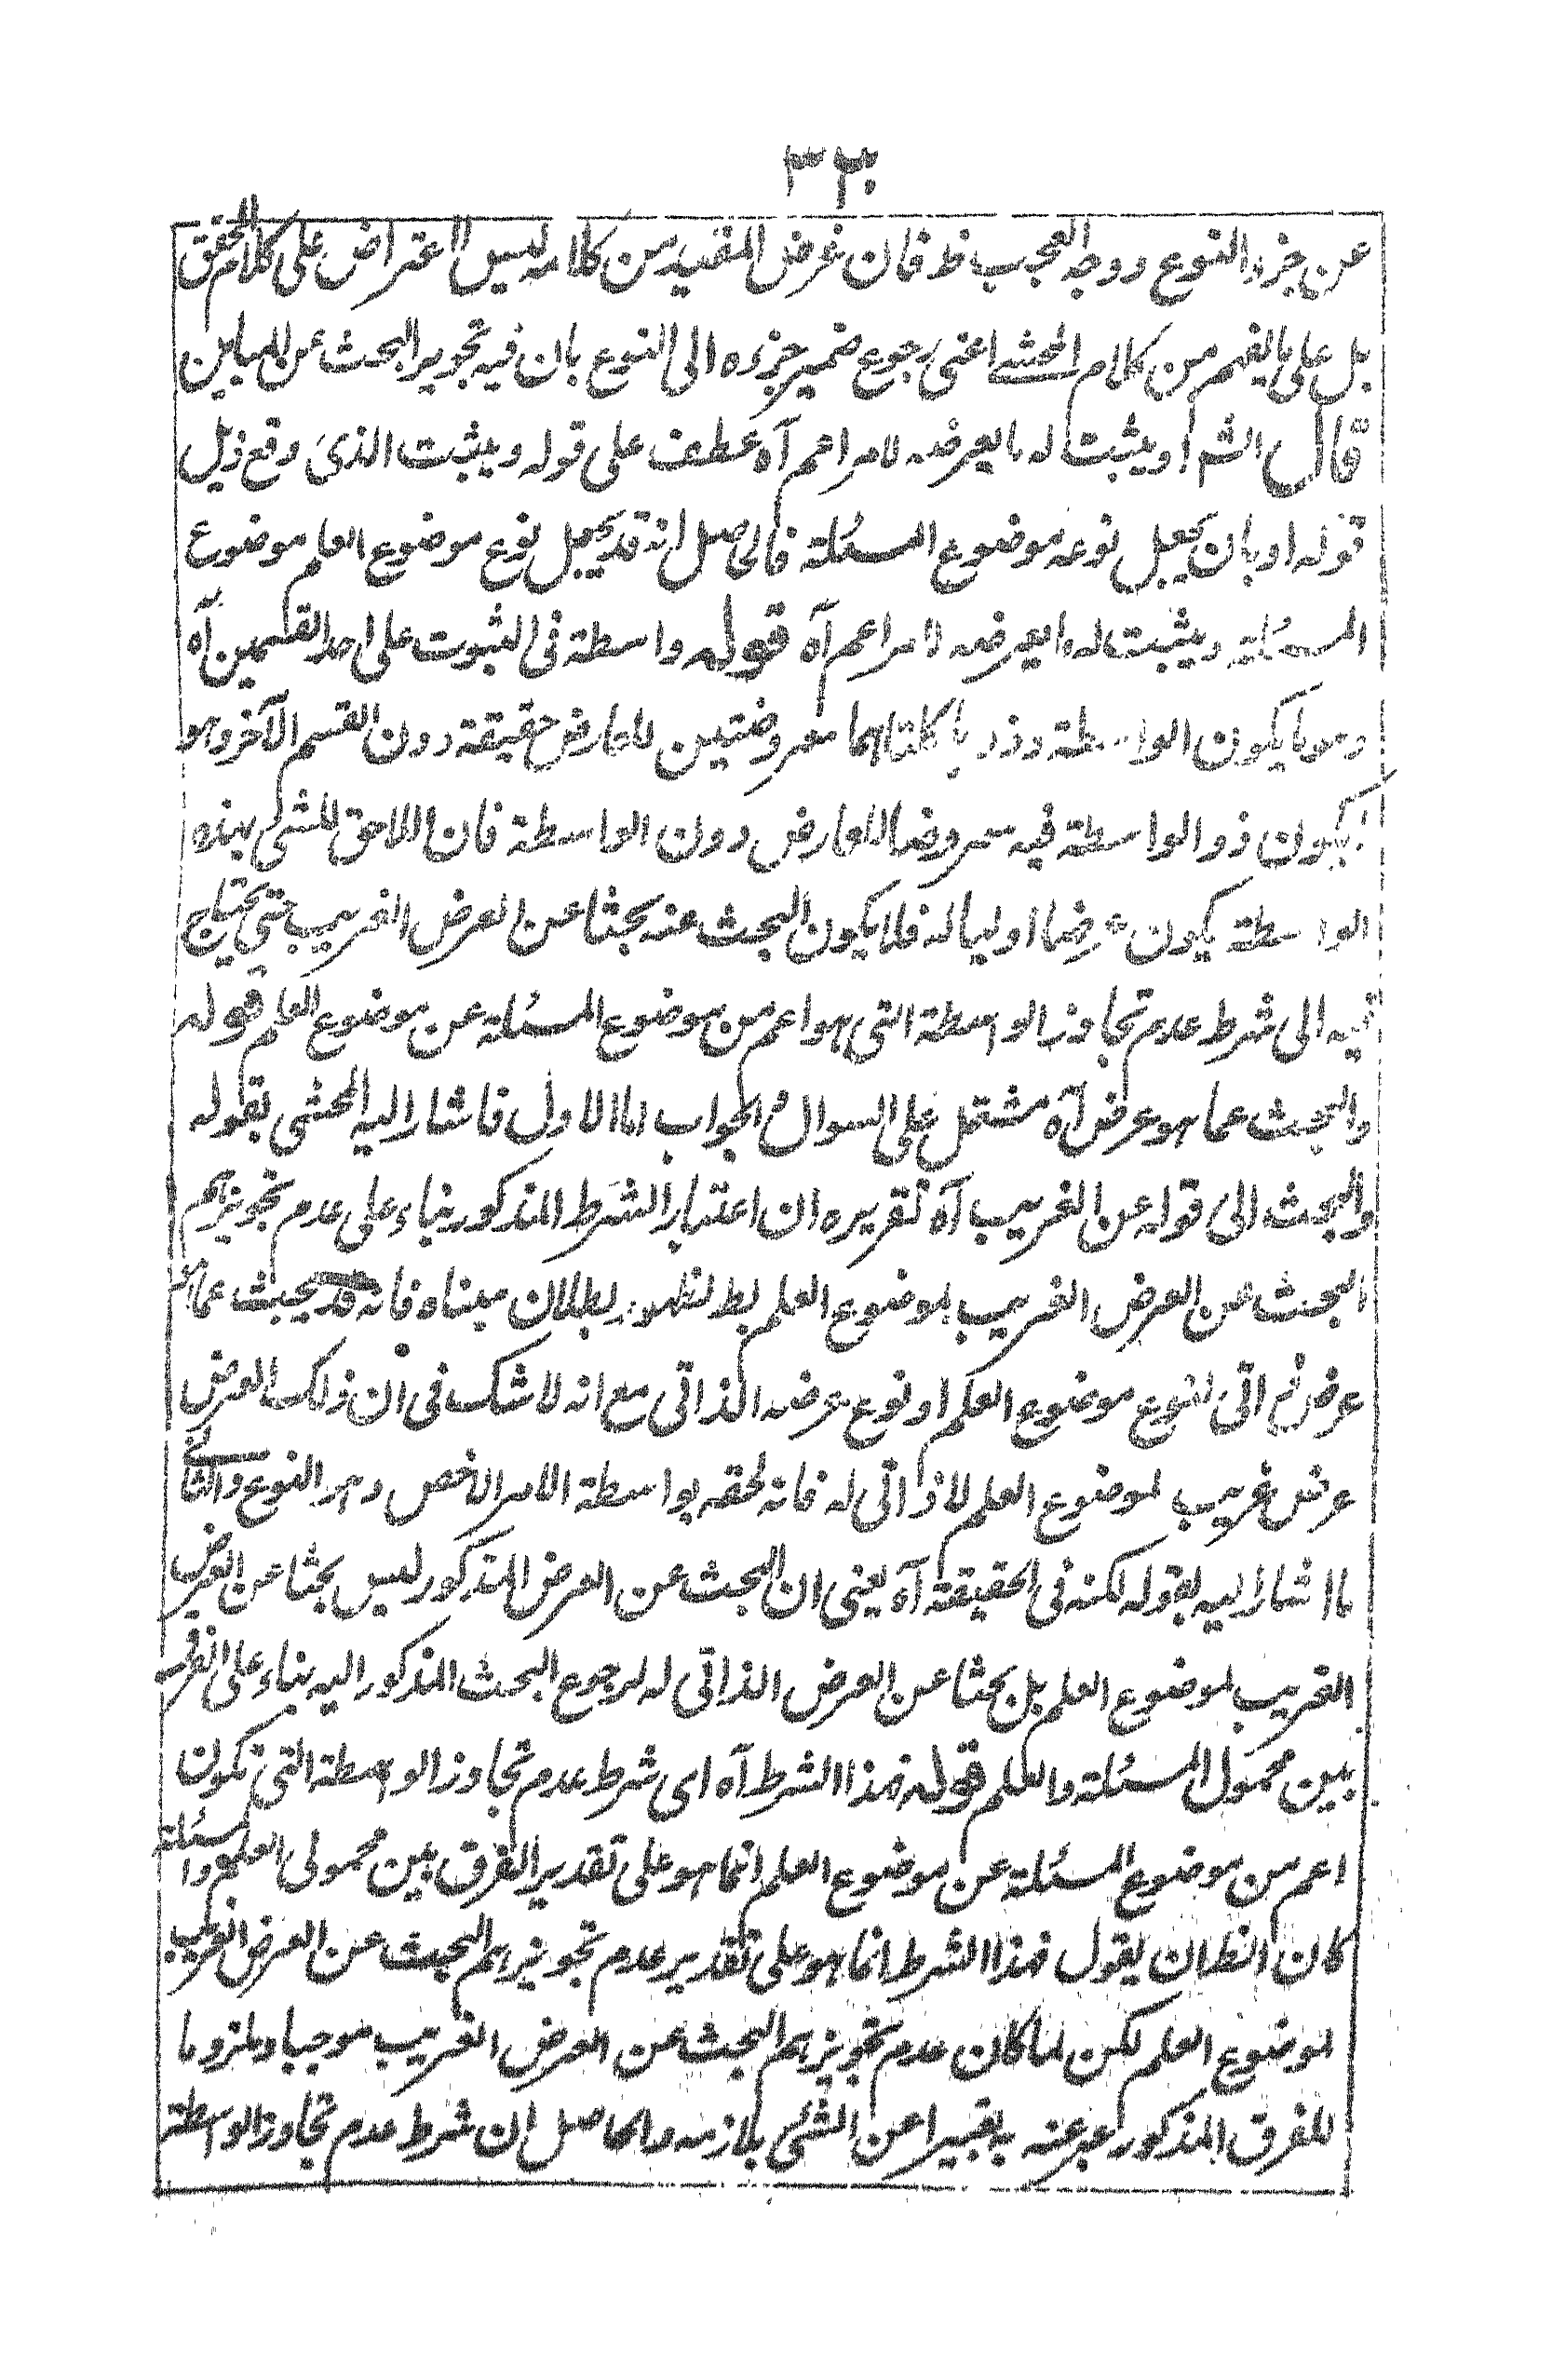 ٣٣
عن جزء النوع ووجه العجب ظ فان غرض المفيد من كلامه ليس الاعتراض على كلام المحقق
بل على ما يفهم من كلام المحشے اعنى رجوع ضمير جزءه الى النوع بان فيه تجويز البحث عن المباين
قال الشم او يثبت له ما يعرضه لامر اعم آه عطف على قوله ويثبت الذى وقع ذيل
قوله او بان يجعل نوعه موضوع المسئلة فالحاصل انه قد يجعل نوع موضوع العلم موضوع
المسئلة ويثبت له ما يعرضه لامر اعم آه قوله واسطة فى الثبوت على احد القسمين آه
وهو ما يكون الواسطة وذو ها كلتاهما معروضتين للعارض حقيقة دون القسم الآخر وهو
يكون ذو الواسطة فيه معروضا للعارض دون الواسطة فان اللاحق للشى بهذه
الواسطة يكون عرضا اوليا له فلا يكون البحث عنه بحثا عن العرض الغريب حتى يحتاج
فيه الى شرط عدم تجاوز الواسطة التى هو اعم من موضوع المسئلة عن موضوع العلم قوله
والبحث عما هو عرض آه مشتمل على السوال والجواب اما الاول فاشار اليه المحشى بقوله
والبحث الى قوله عن الغريب آه تقريره ان اعتبار الشرط المذكور بناء على عدم تجويزهم
البحث عن العرض الغريب لموضوع العلم بط لظهور بطلان مبناه فانه قد يبحث عما هو
عرض ذاتى لنوع موضوع العلم او نوع عرضه الذاتى مع انه لا شك فى ان ذلك العرض
عرض غريب لموضوع العلم لا ذاتى له فانه لحقه بواسطة الامر الاخص وهو النوع والثانے
ما اشار اليه بقوله لكنه فى الحقيقة آه يعنى ان البحث عن العرض المذكور ليس بحثا عن العرض
الغريب لموضوع العلم بل بحثا عن العرض الذاتى له لرجوع البحث المذكور اليه بناء على الفرق
بين محمول المسئلة والعلم قوله فهذا الشرط آه اى شرط عدم تجاوز الواسطة التى تكون
اعم من موضوع المسئلة عن موضوع العلم انما هو على تقدير الفرق بين محمولى العلم والمسئلة
كان الظ ان يقول فهذا الشرط انما هو على تقدير عدم تجويزهم البحث عن العرض الغريب
لموضوع العلم لكن لما كان عدم تجويزهم البحث عن العرض الغريب موجبا وملزوما
للفرق المذكور عبر عنه به تعبيرا عن الشئ بلازمه والحاصل ان شرط عدم تجاوز الواسطة